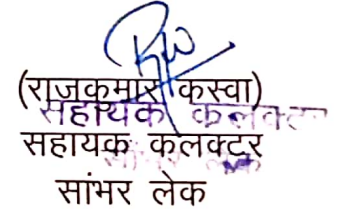 (राजकुमार कस्वा)
सहायक कलक्टर
सहायक कलक्टर
सांभर लेक